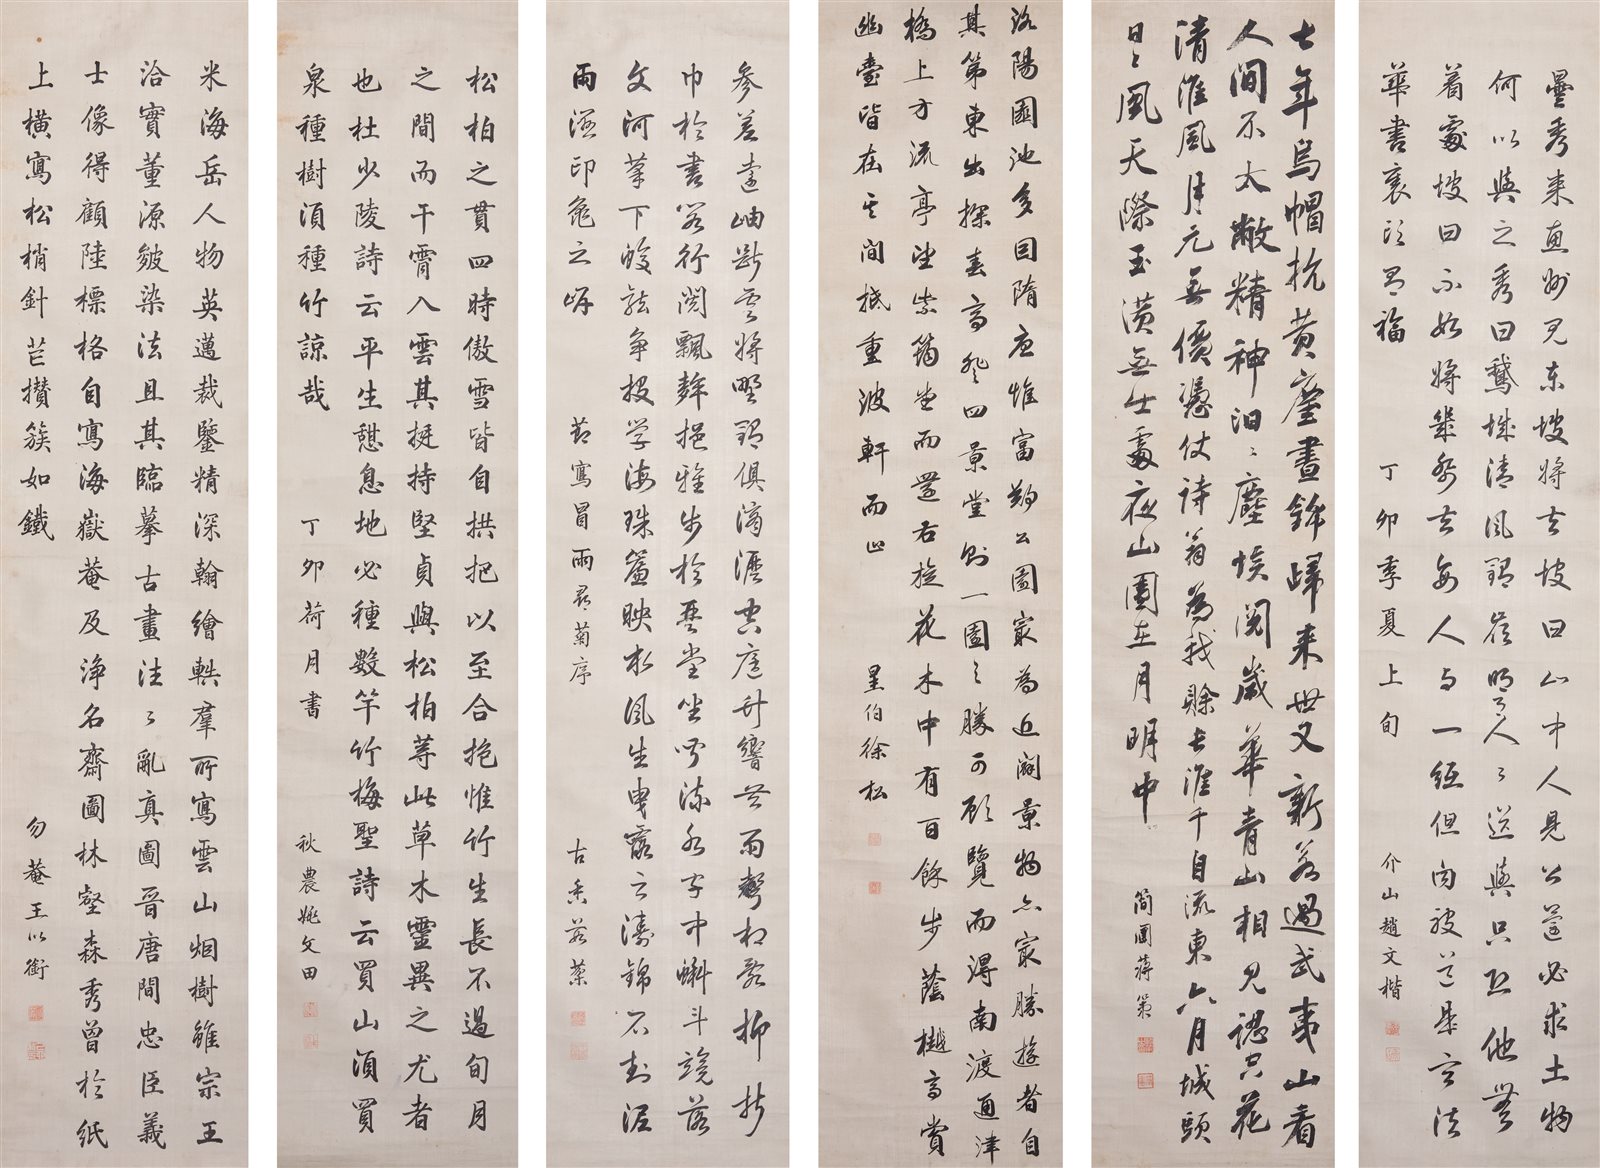 曇秀来惠州見東坡將去坡曰山中人見公還必求土物
何以與之秀曰鵝城清風鶴嶺明月人〻送與只恐他無
着處坡曰不如將幾紙去每人与一紙但向彼道是言法
華書裏頭有福
丁卯季夏上旬
介山趙文楷
七年烏帽抗黄塵晝錦歸来世又新若過武夷山看
人間不太敝精神汩〻塵埃閱歲華青山相見認只花
清淮風月元無價憑仗詩翁為我賒長淮千自流東六月城頭
日〻風天際玉潢無仕處夜山園在月明中
簡圃蔣第
洛陽園池多因隋唐惟富鄭公園最為近闢景物亦最勝遊者自
其第東出探春亭登四景堂則一園之勝可顧覽而得南渡通津
橋上方流亭望紫筠堂而還右旋花木中有百餘步蔭樾亭賞
幽臺皆在其間抵重波軒而止
星伯徐松
參差遠岫斷雲將野鶴俱滴瀝空庭竹響共雨聲相亂仰折
巾於書閣行閱飄挹雅步於琴堂坐聞流水字中蝌斗競落
文河筆下蛟龍争投学海珠簾映水風生曳露之濤錦石封泥
雨湿印龜之岸
節寫冒雨尋菊序
古香茹棻
松柏之貫四時傲雪皆自拱把以至合抱惟竹生長不過旬月
之間而干霄入雲其挺持堅貞與松柏等此草木靈異之尤者
也杜少陵詩云平生憩息地必種數竿竹梅聖詩云買山須買
泉種樹須種竹諒哉
丁卯荷月書
秋農姚文田
米海岳人物英邁裁鑒精深翰繪軼羣所寫雲山烟樹雖宗王
洽實董源皴染法且其臨摹古畫往〻亂真圖晉唐間忠臣義
士像得顧陸標格自寫海嶽菴及浄名齋圖林壑森秀曾於紙
上橫寫松梢針芒攢簇如鐵
勿菴王以銜